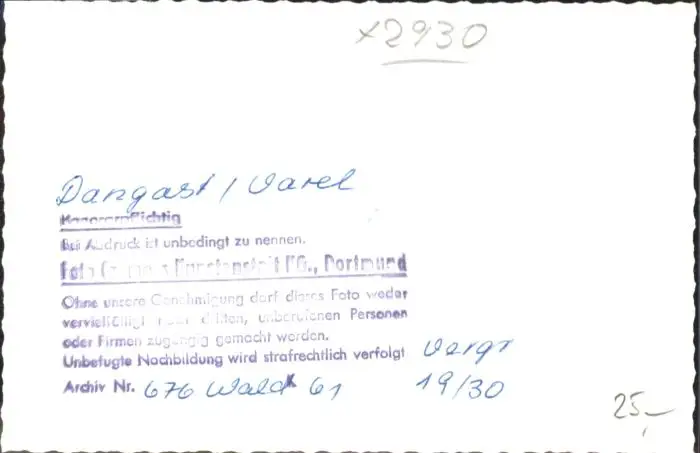 x2930
Dangast / Varel
Honorarpflichtig
Bei Abdruck ist unbedingt zu nennen.
Foto Kunstanstalt KG., Dortmund
Ohne unsere Genehmigung darf dieses Foto weder
vervielfältigt noch dritten, unberufenen Personen
oder Firmen zugängig gemacht werden.
Unbefugte Nachbildung wird strafrechtlich verfolgt
Vergr
Archiv Nr. 676 Wald 61
19/30
25,-